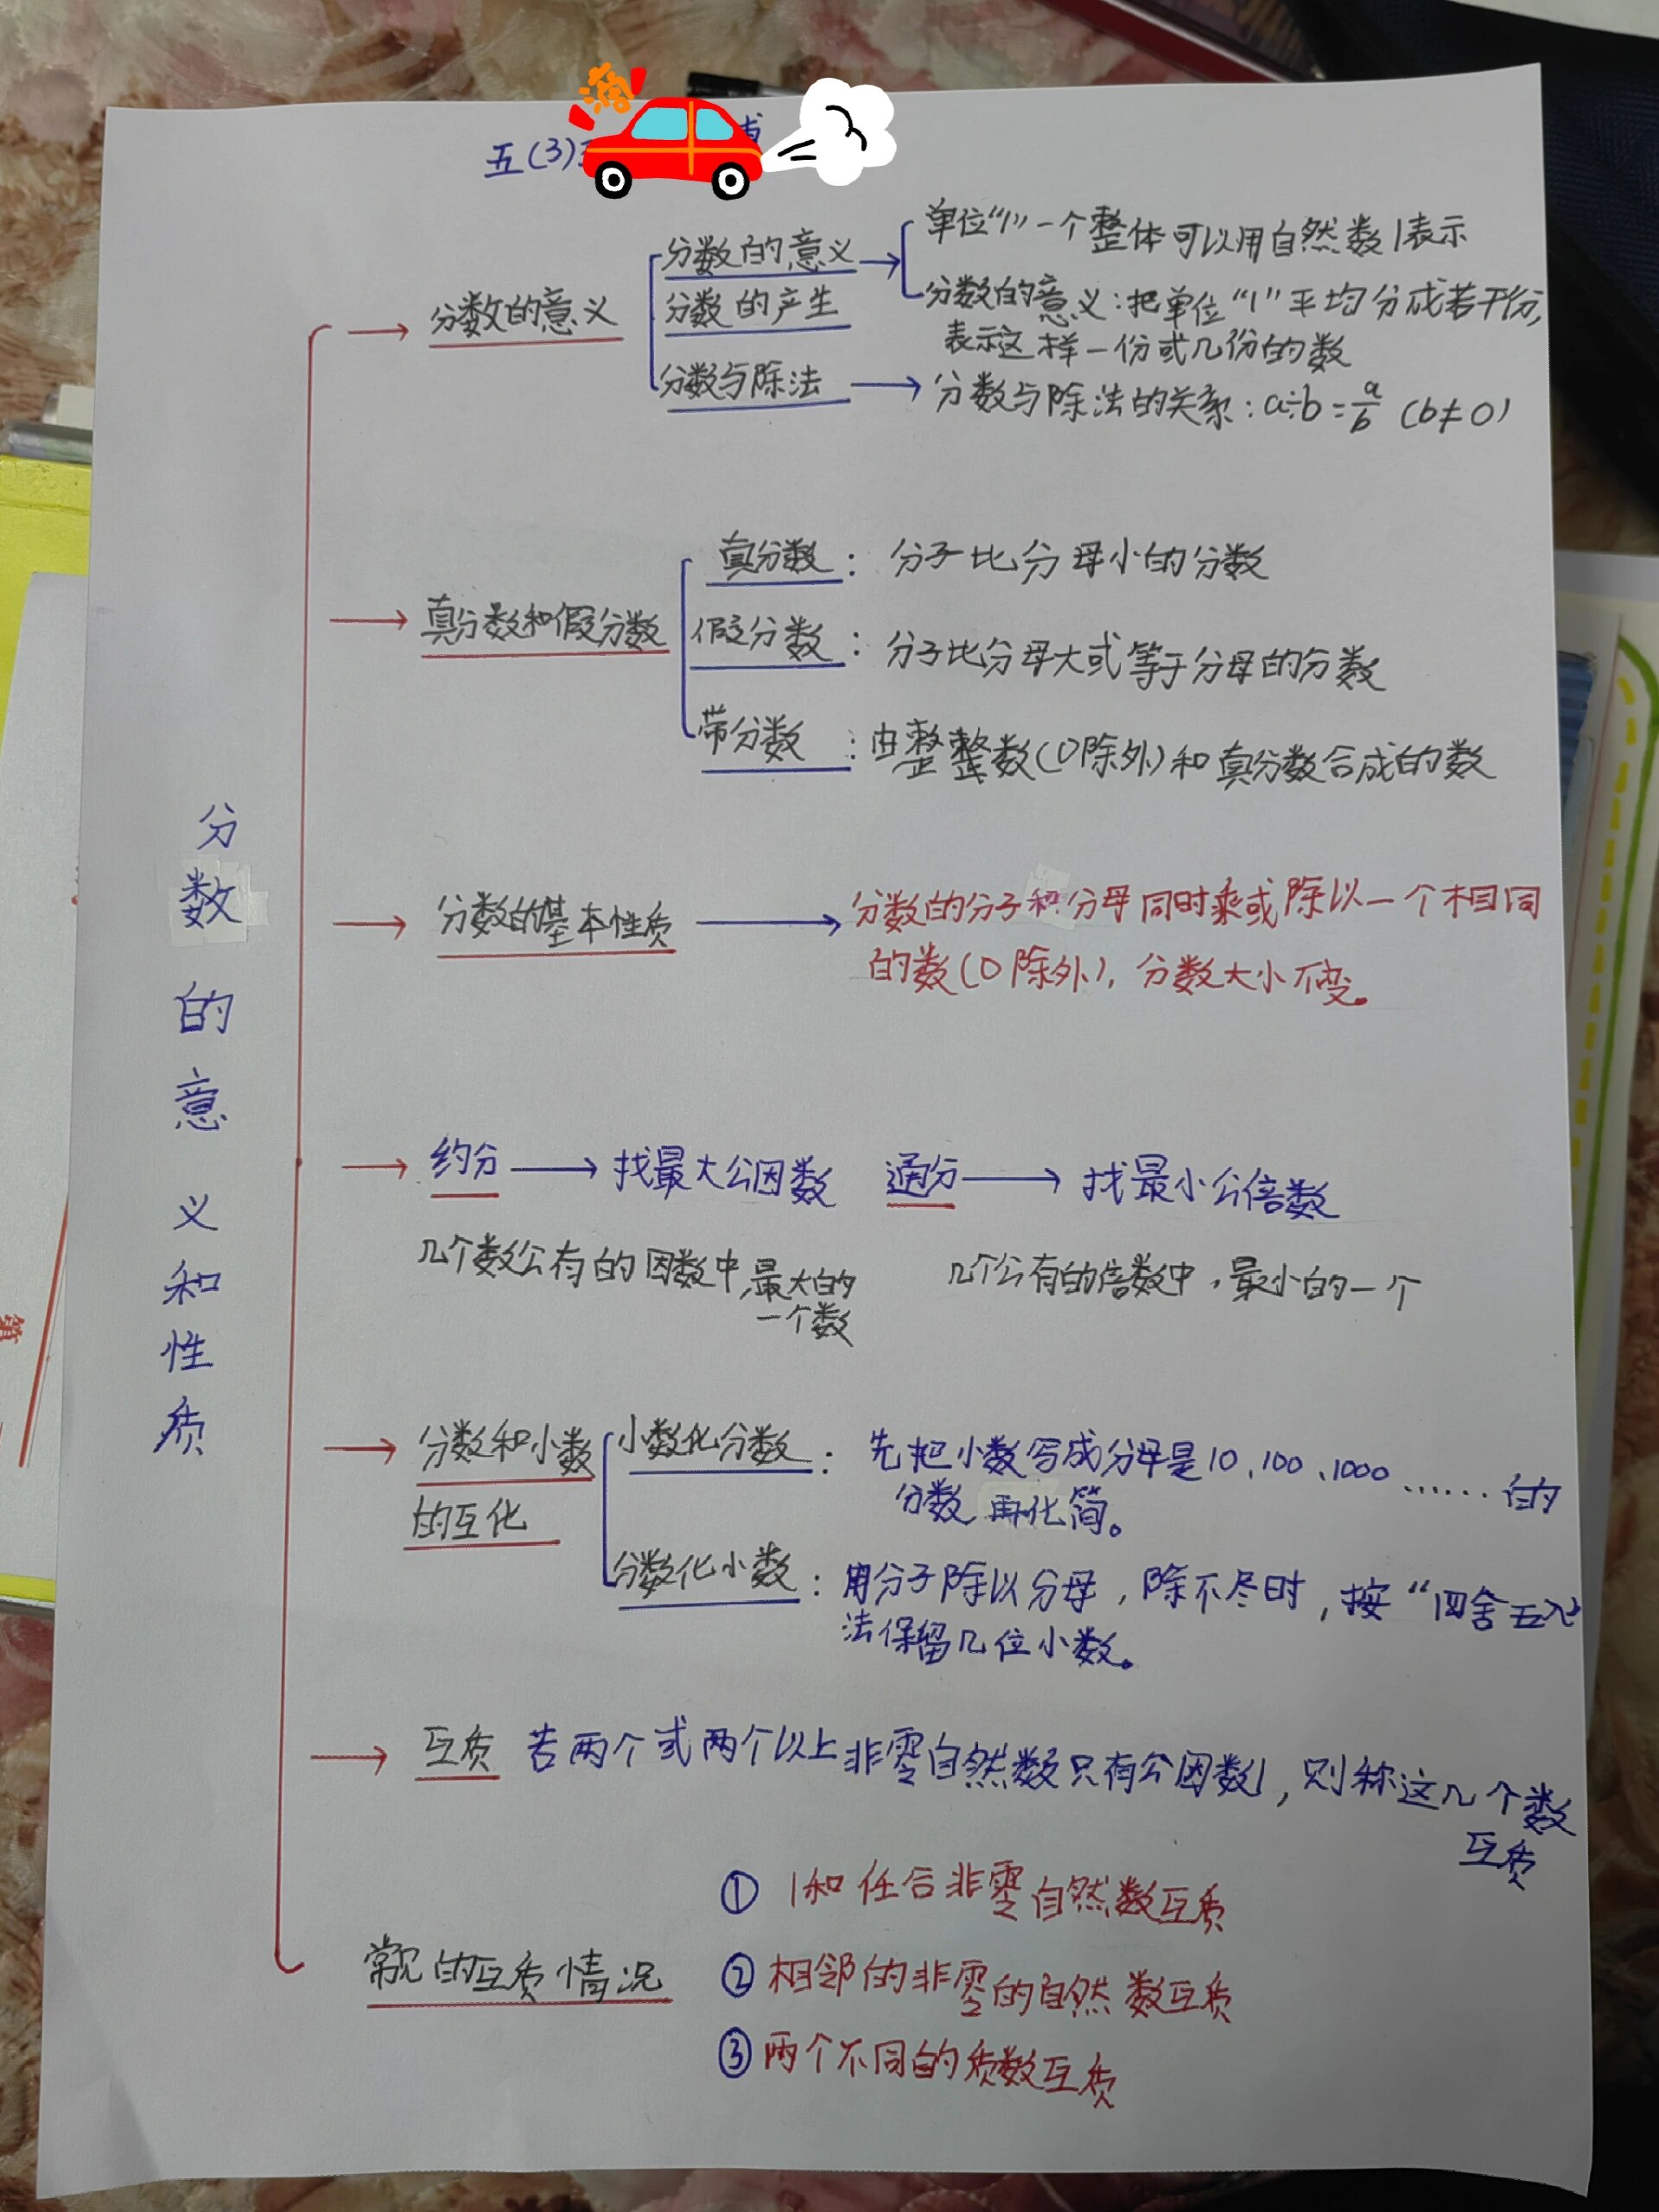 五(3)
分数的意义和性质
分数的意义
分数的意义
单位“1”一个整体可以用自然数1表示
分数的意义:把单位“1”平均分成若干份,
表示这样一份或几份的数
分数的产生
分数与除法
分数与除法的关系:a÷b=a/b (b≠0)
真分数和假分数
真分数:分子比分母小的分数
假分数:分子比分母大或等于分母的分数
带分数:由整整数(0除外)和真分数合成的数
分数的基本性质
分数的分子和分母同时乘或除以一个相同
的数(0除外),分数大小不变。
约分 找最大公因数 通分 找最小公倍数
几个数公有的因数中,最大的
一个数
几个公有的倍数中,最小的一个
分数和小数
的互化
小数化分数:先把小数写成分母是10、100、1000……的
分数再化简。
分数化小数:用分子除以分母,除不尽时,按“四舍五入”
法保留几位小数。
互质 若两个或两个以上非零自然数只有公因数1,则称这几个数
互质
常见的互质情况
① 1和任合非零自然数互质
② 相邻的非零的自然数互质
③ 两个不同的质数互质